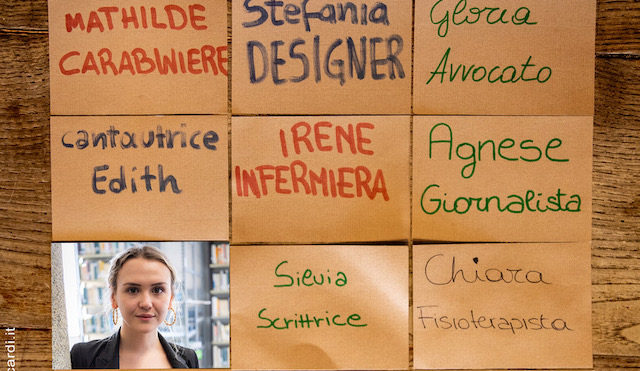 MATHILDE
CARABINIERE
Stefania
DESIGNER
Gloria
Avvocato
cantautrice
Edith
IRENE
INFERMIERA
Agnese
Giornalista
Silvia
Scrittrice
Chiara
Fisioterapista
cardi.it